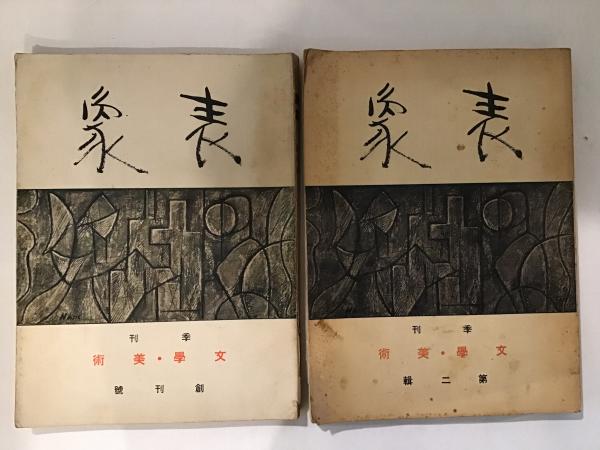 表象
季刊
文學・美術
創刊號
表象
季刊
文學・美術
第二輯